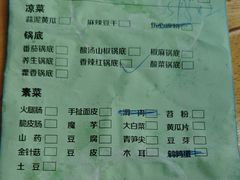 凉菜
蒜泥黄瓜 麻辣豆干
锅底
番茄锅底 酸汤山椒锅底 椒麻锅底
养生锅底 香辣红锅底 酸菜锅底
藿香锅底
素菜
火腿肠 手扯面皮 苕粉
脆皮肠 魔芋 大白菜 黄瓜片
山药 豆腐 青笋尖 豆芽
金针菇 豆皮 木耳
土豆